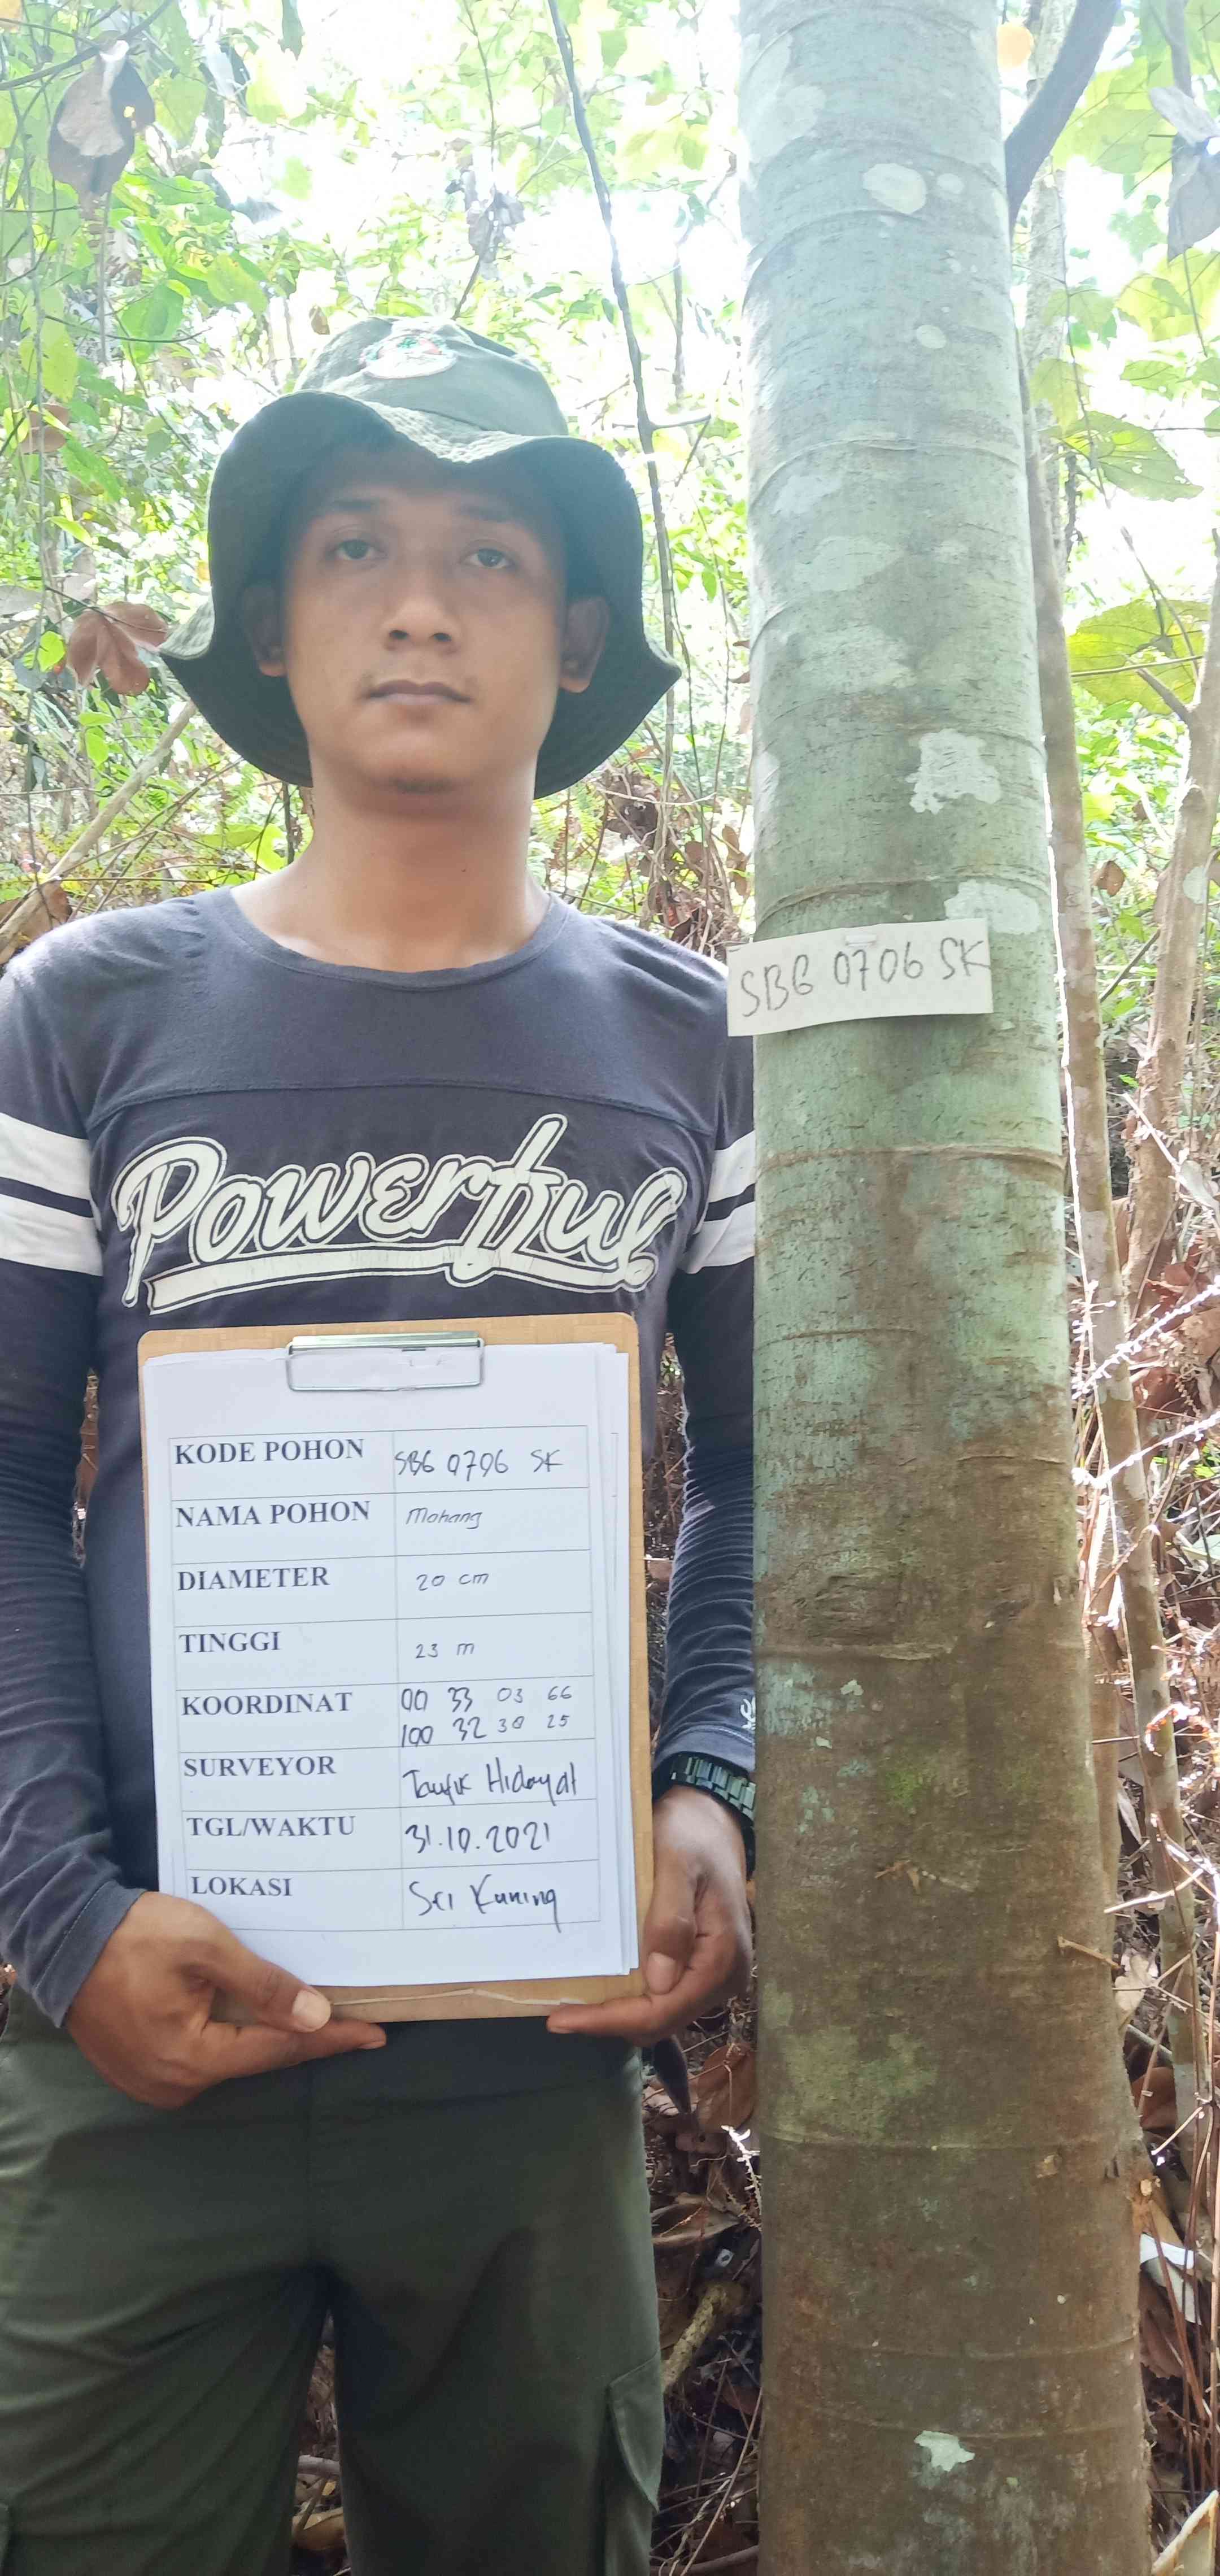 SBG 0706 SK
Powerful
KODE POHON SBG 0706 SK
NAMA POHON Mahang
DIAMETER 20 cm
TINGGI 23 m
KOORDINAT 00 33 03 66
100 32 30 25
SURVEYOR Taufik Hidayat
TGL/WAKTU 31.10.2021
LOKASI Sri Kuning